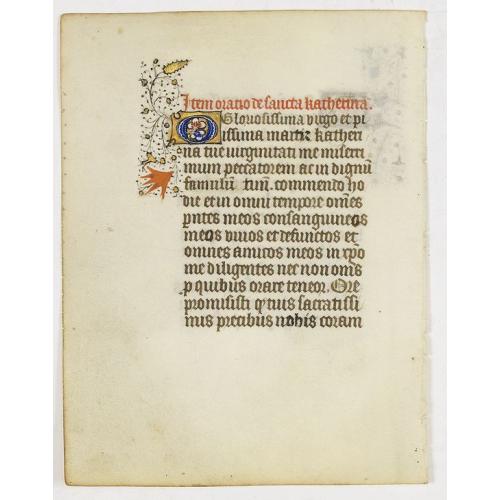 Item oratio de sancta katherina.
O Gloriosissima virgo et pi
issima martir katheri
na tue virginitati me miserri
mum peccatorem ac in dignũ
famulũ tuũ. commendo ho
die et in omni tempore om̃es
p̃ntes meos consanguineos
meos viuos et defunctos et
omnes amicos meos in xp̃o
me diligentes nec non om̃s
p quibus orare teneor. Que
promisisti qʼ tuis sacratissi
mis precibus nobis coram